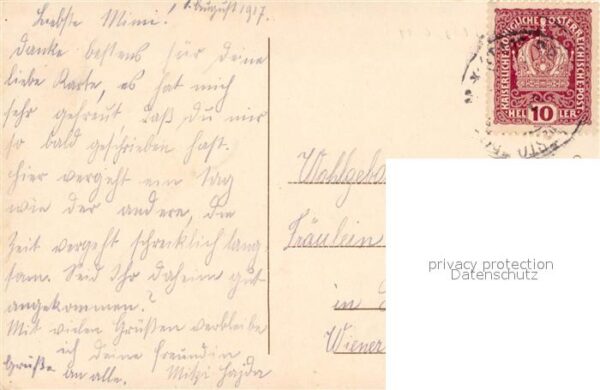 1. August 1917.
Liebste Mimi!
Danke bestens für deine
liebe Karte, es hat mich
sehr gefreut daß du mir
so bald geschrieben hast.
Hier vergeht ein Tag
wie der andere, die
Zeit vergeht schrecklich lang-
sam. Seid Ihr daheim gut
angekommen?
Mit vielen Grüßen verbleibe
ich deine Freundin
Grüße an alle. Mitzi Hajda
KAISERLICHE KÖNIGLICHE ÖSTERREICHISCHE POST
HELLER
10
Wohlgebo
Fräulein
in
Wiener
privacy protection
Datenschutz